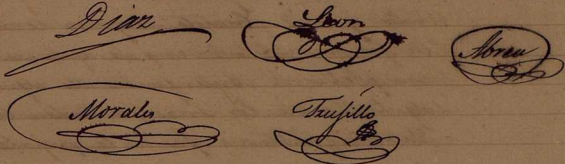 Diaz Leon Abreu
Morales Trujillo